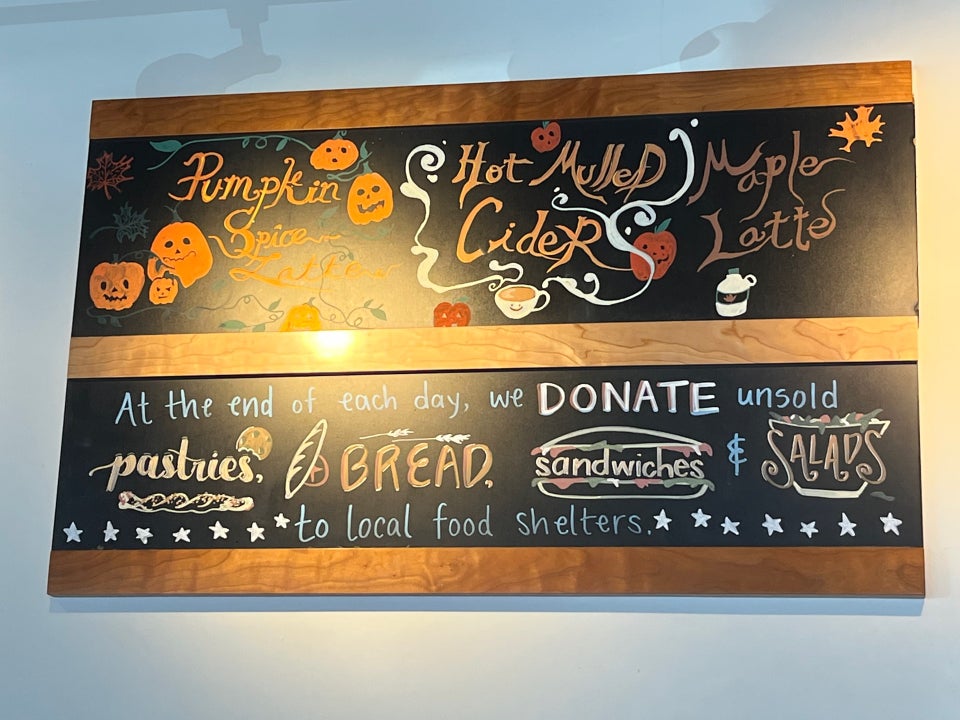 Pumpkin
Spice
Latte
Hot Mulled
Cider
Maple
Latte
At the end of each day, we DONATE unsold
pastries, BREAD, sandwiches & SALADS
to local food shelters.